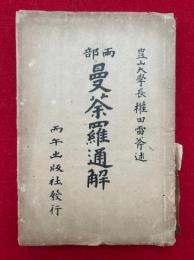 豊山大學長 權田雷斧述
両部
曼荼羅通解
丙午出版社發行